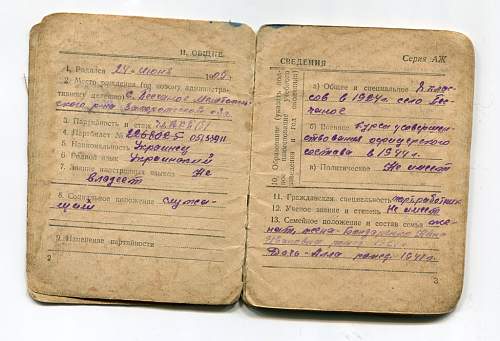 II. ОБЩИЕ
1. Родился 24 июня 1909.
2. Место рождения (по новому административному делению) с. Песчаное
р-на Запорожской обл.
3. Партийность и стаж
4. Партбилет №
5. Национальность Украинец
6. Родной язык Украинский
7. Знание иностранных языков Не
владеет
8. Социальное положение служа-
щий
9. Изменение партийности
2
СВЕДЕНИЯ
Серия АЖ
10. Образование (указать полное наименование учебного заведения и год окончания)
а) Общее и специальное 7 клас-
сов в 1924 г. село Пес-
чаное
б) Военное Курсы усовершен-
ствования офицерского
состава в 1944 г.
в) Политическое Не имеет
11. Гражданская специальность партработник
12. Ученое звание и степень Не имеет
13. Семейное положение и состав семьи же-
нат, жена - Бондаренко
Дочь - Алла рожд. 1941 г.
3